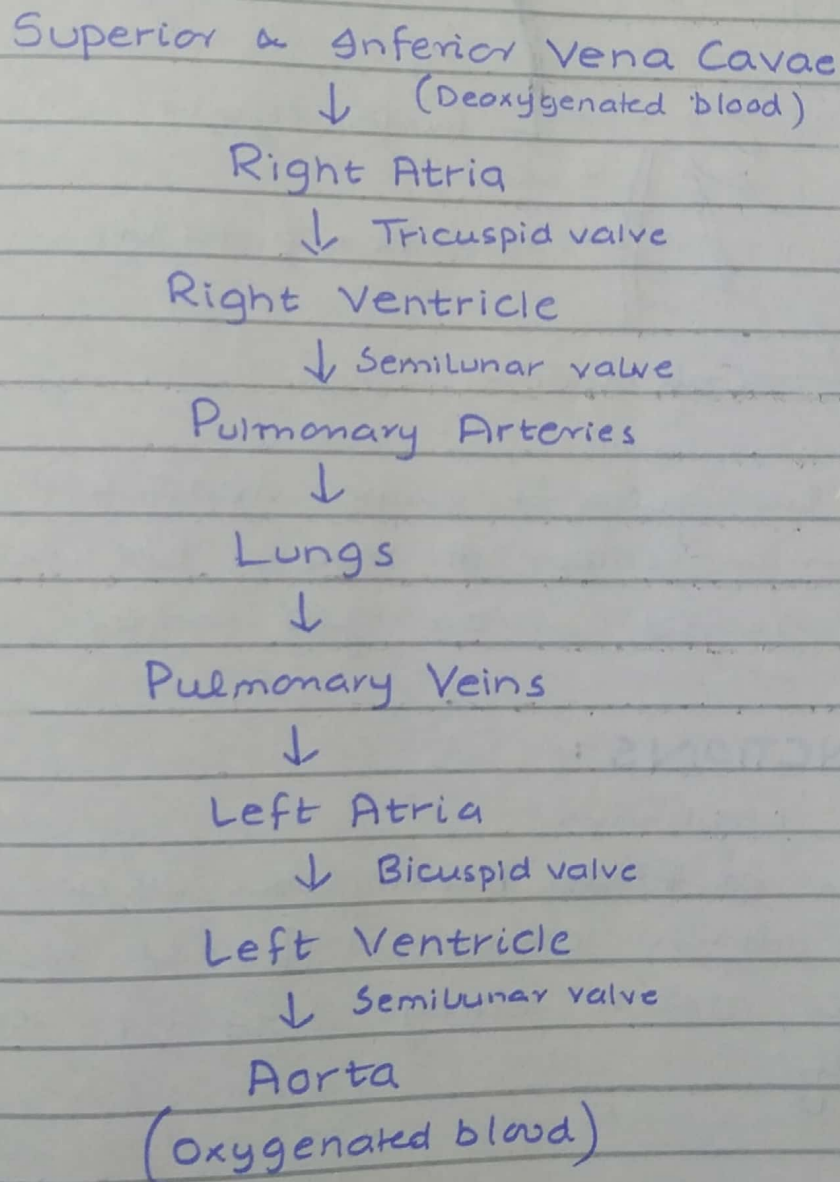 Superior & Inferior Vena Cavae
↓ (Deoxygenated blood)
Right Atria
↓ Tricuspid valve
Right Ventricle
↓ Semilunar valve
Pulmonary Arteries
↓
Lungs
↓
Pulmonary Veins
↓
Left Atria
↓ Bicuspid valve
Left Ventricle
↓ Semilunar valve
Aorta
(Oxygenated blood)